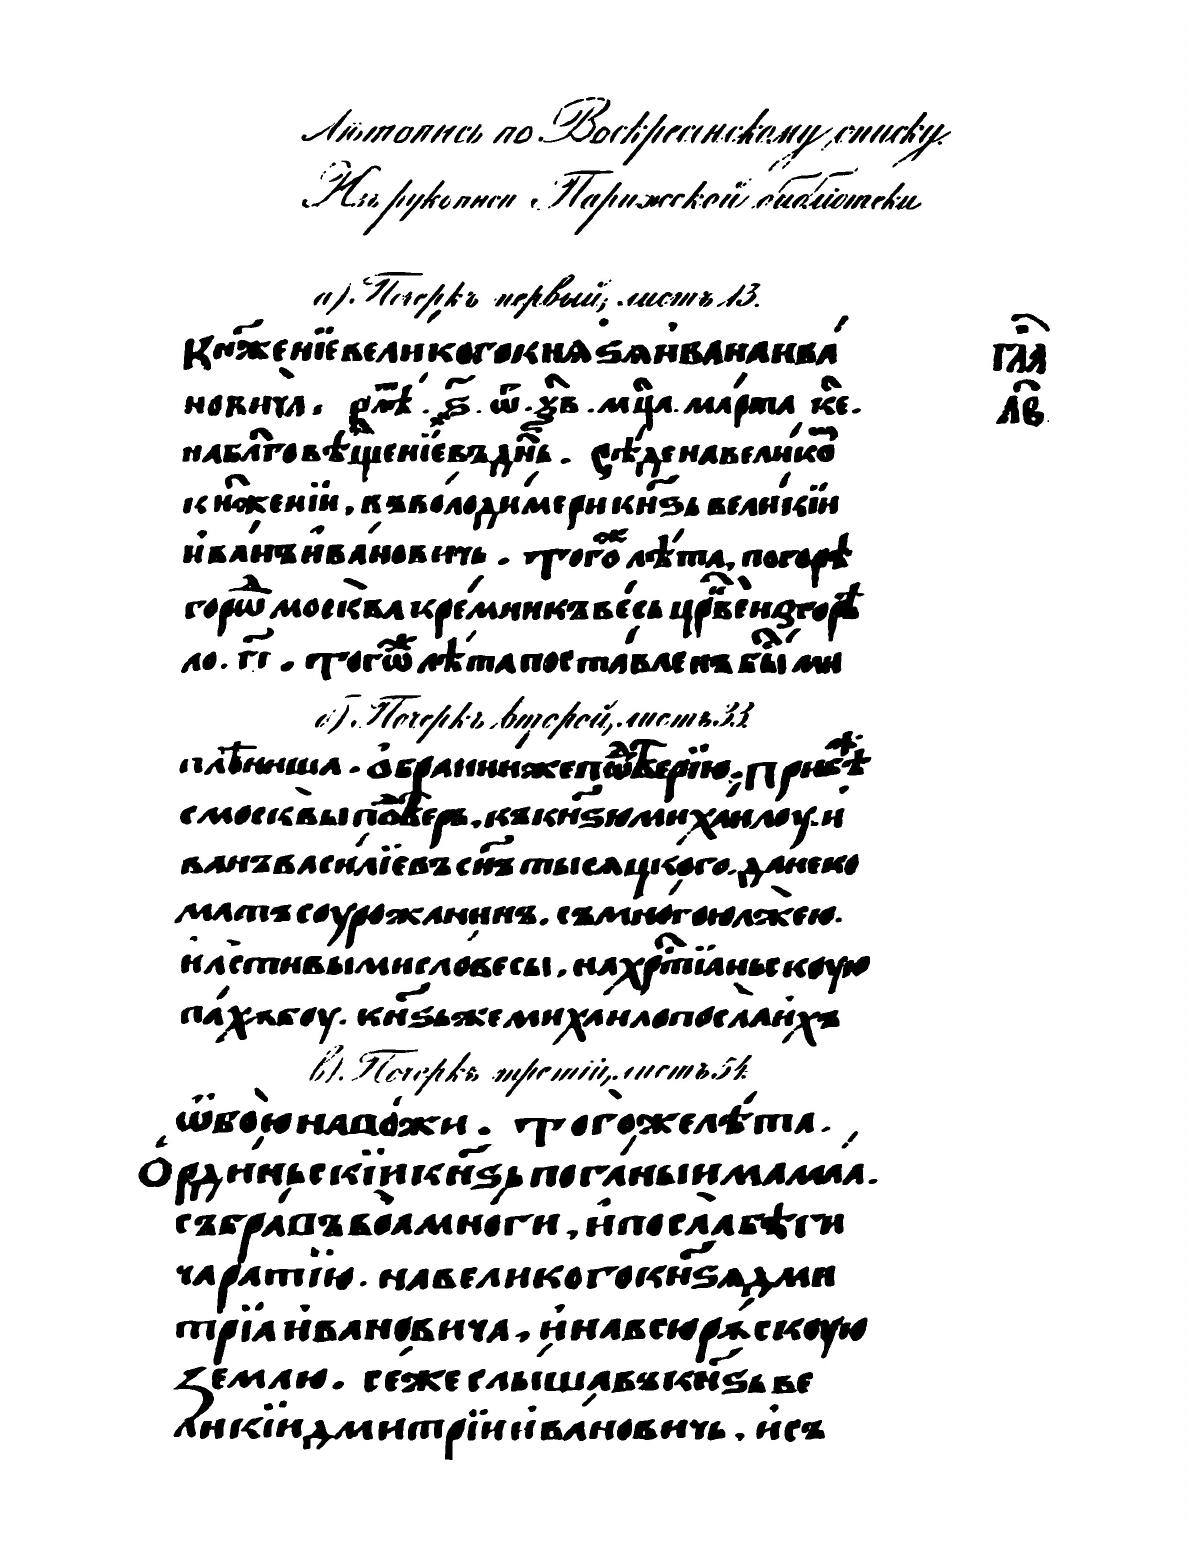 Лѣтопись по Воскресенскому списку.
Изъ рукописи Парижской библіотеки
а). Почеркъ первый, листъ 13.
КнⷤженїевеликогокнѧѕѧИванаИва
гла҃
новича. рл҃ѣ. ѕ҃. ѿ. хв҃. мц҃а. марта к҃е.
лв҃
наблⷢ҇овѣщенїевъдн҃ь. сѣденавелико
кнⷤженїи, въволодимерикн҃ѕьвеликїи
иванъивановичь. тогоⷤлѣта, погорѣ
гороⷣ москвакремникъвесь црⷦ҇веиⷩзгорѣ
ло. г҃і. тогоⷤлѣтапоставленъбыⷭми
б). Почеркъ второй, листъ 33
плѣниша. обранинжепоⷣтверїю, прибѣⷤ
смосквыпоⷣтверь. къкн҃ѕюмихаилоу. и
ванъвасилїевъсн҃ътысяцкого. данеко
матъсоурожанинъ. съмногоюлжею.
ильстивымисловесы, нахрⷭ҇тїаньскоую
пагоубоу. кн҃ѕьжемихаилопослаихъ
в). Почеркъ третій, листъ 54.
ѿбоюнаножи. тогожелѣта.
Ордіньскїикн҃ѕьпоганыимамаа.
събравъвоамноги, ипославѣги
чаратїю. навеликогокн҃ѕѧдми
трїаивановича, инавсюрꙋскоую
Землю. сежеслышавъкн҃ѕьве
ликїидмитрїиивановичь. исъ